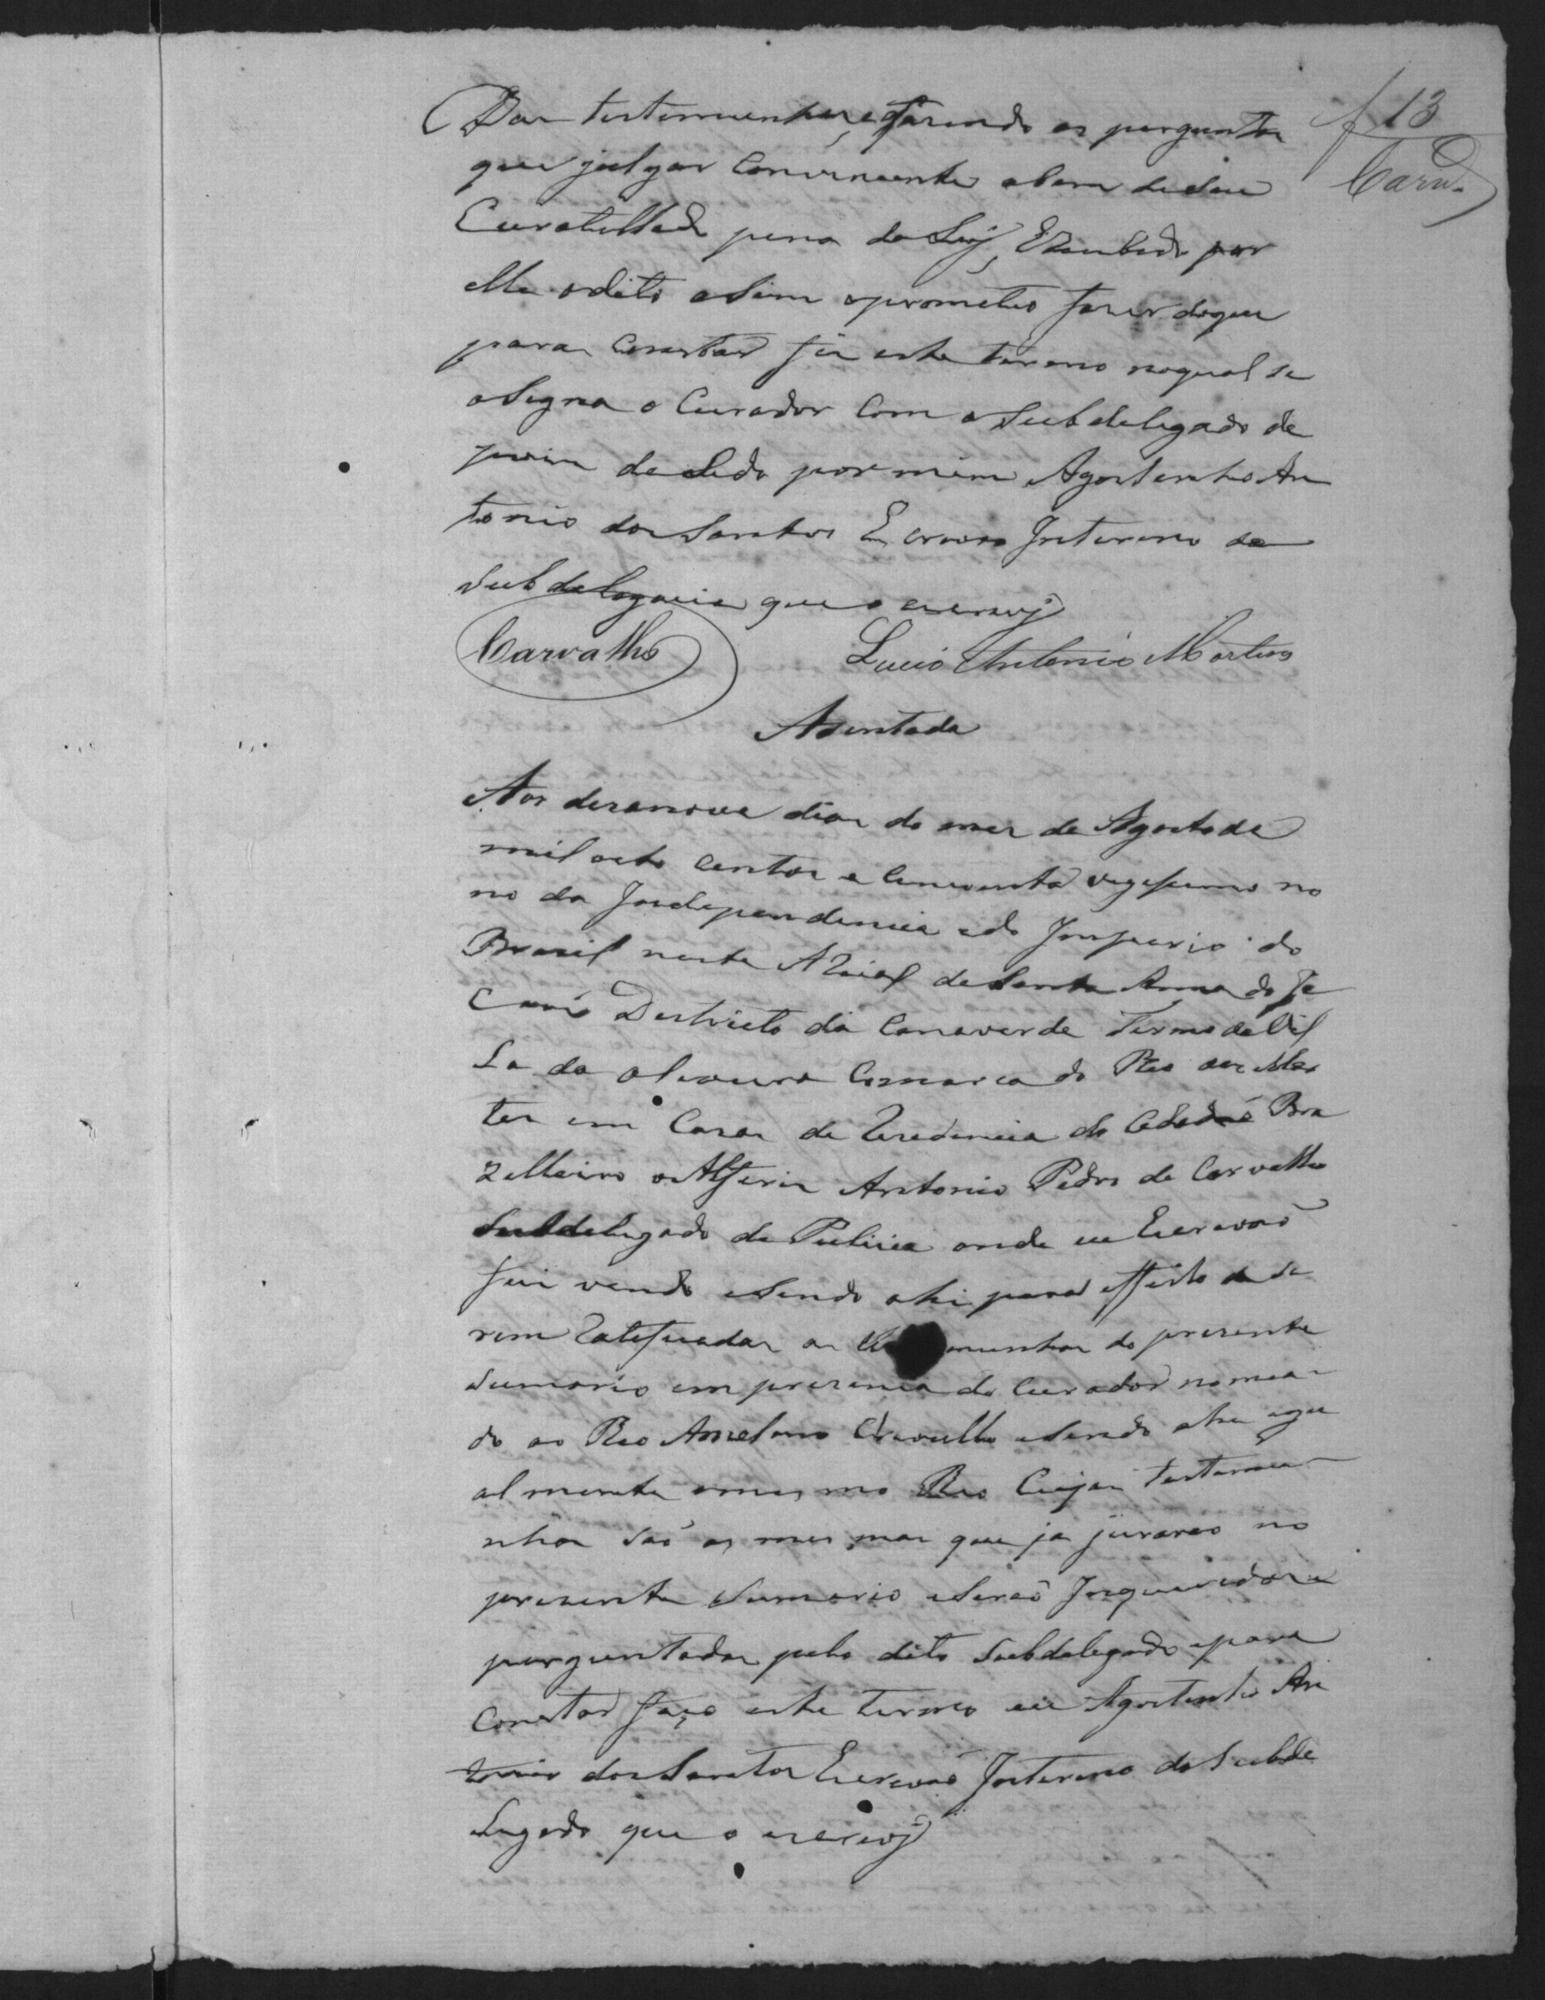 f 13
Carv.º
Das testemunhas, e fazendo as perguntas
que julgar Conveniente abem deseu
Curatellado pena da Ley, E recebido por
elle odito asim oprometeo fazer doque
para Constar fiz este termo noqual se
asigna o Curador Com o Subdelegado de
pois de Lido por mim Agostinho An
tonio dos Santos Escrivão Interino da
Subdelegacia que o escrevi
Carvalho Lucio Antonio Martins
Asentada
Aos dezanove dias do mez de Agosto de
mil oito centos e Cincoenta vigesimo no
no da Independencia edo Imperio do
Brasil neste Arraial de Santa Anna do Ja
caré Destricto da Canaverde Termo da Vil
la da oliveira Comarca do Rio das Mor
tes em Casas de Rezedencia do Cidadão Bra
zilleiro o Alferes Antonio Pedro de Carvalho
Subdelegado de Pulicia onde eu Escrivão
fui vendo esendo ahi para effeito de se
rem Rateficadas as munhas do presente
Sumario em prezença do Curador nomea
do ao Reo Anselmo Crioullo esendo ahi egu
almente omesmo Reo Cujas testemu
nhas são as mesmas que ja jurarão no
presente Sumario eserão Inqueridas e
perguntadas pelo dito Subdelegado epara
Constar faço este termo eu Agostinho An
tonio dos Santos Escrivão Interino do Subde
legado que o escrevi